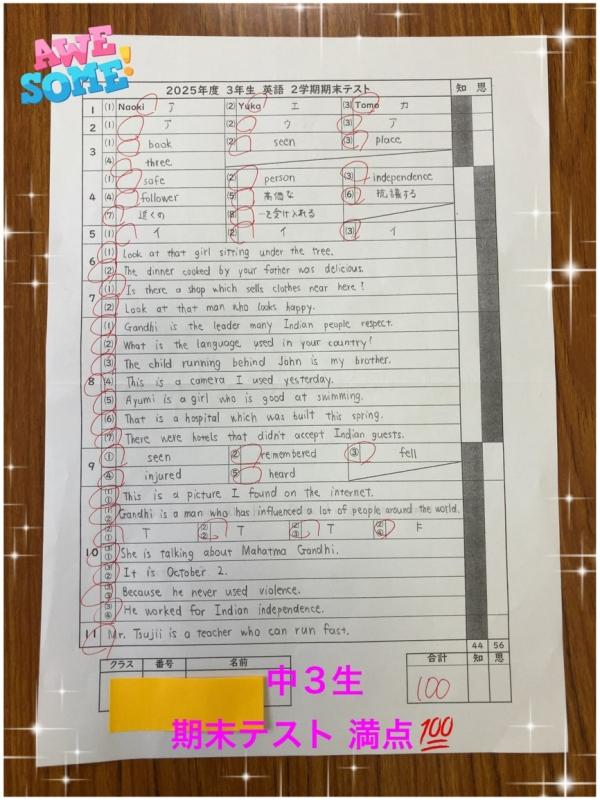 AWESOME!
2025年度 3年生 英語 2学期期末テスト 知 思
1 (1) Naoki ア (2) Yuka エ (3) Tomo カ
2 (1) ア (2) ウ (3) ア
3 (1) book (2) seen (3) place
(4) three
4 (1) safe (2) person (3) independence
(4) follower (5)高価な (6) 抗議する
(7) 近くの (8) ~を受け入れる
5 (1) イ (2) イ (3) イ
6 (1) Look at that girl sitting under the tree.
(2) The dinner cooked by your father was delicious.
7 (1) Is there a shop which sells clothes near here?
(2) Look at that man who looks happy.
8 (1) Gandhi is the leader many Indian people respect.
(2) What is the language used in your country?
(3) The child running behind John is my brother.
(4) This is a camera I used yesterday.
(5) Ayumi is a girl who is good at swimming.
(6) That is a hospital which was built this spring.
(7) There were hotels that didn't accept Indian guests.
9 ① seen ② remembered ③ fell
④ injured ⑤ heard
10 (1) ① This is a picture I found on the internet.
(1) ② Gandhi is a man who has influenced a lot of people around the world.
(2) ① T (2) ② T (2) ③ T (2) ④ F
(3) ① She is talking about Mahatma Gandhi.
(3) ② It is October 2.
(3) ③ Because he never used violence.
(3) ④ He worked for Indian independence.
11 Mr. Tsujii is a teacher who can run fast.
44 56
クラス 番号 名前 合計 知 思
100
中3生
期末テスト 満点💯